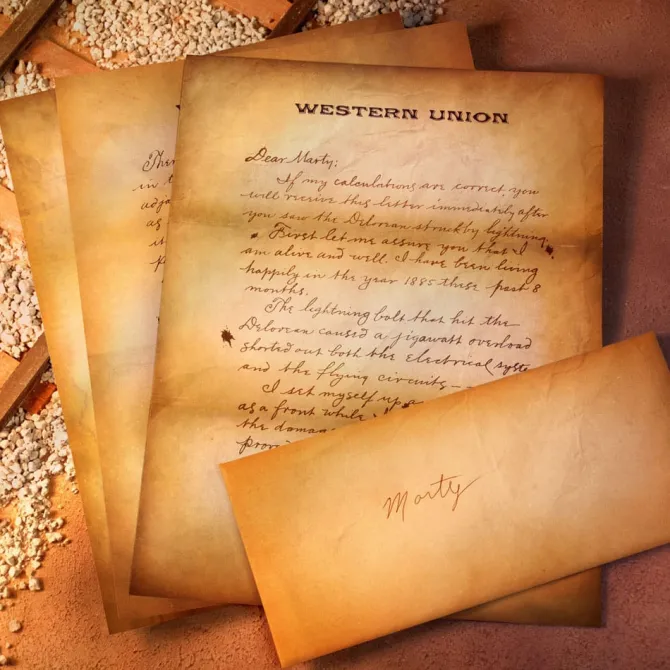 WESTERN UNION
Dear Marty;
If my calculations are correct, you
will receive this letter immediatily after
you saw the Delorean struck by lightning.
First let me assure you that I
am alive and well. I have been living
happily in the year 1885 these past 8
months.
The lightning bolt that hit the
Delorean caused a jigawatt overload
shorted out both the electrical syste
and the flying circuits
I set myself up a
as a front while I
the damag
in t
adja
as
Marty